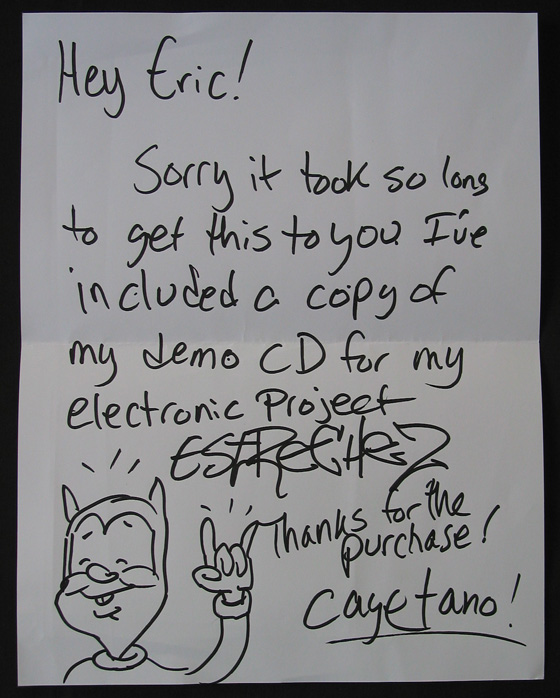 Hey Eric!
Sorry it took so long
to get this to you. I've
included a copy of
my demo CD for my
electronic Project
ESTRECHEZ
Thanks for the
purchase!
Cayetano!